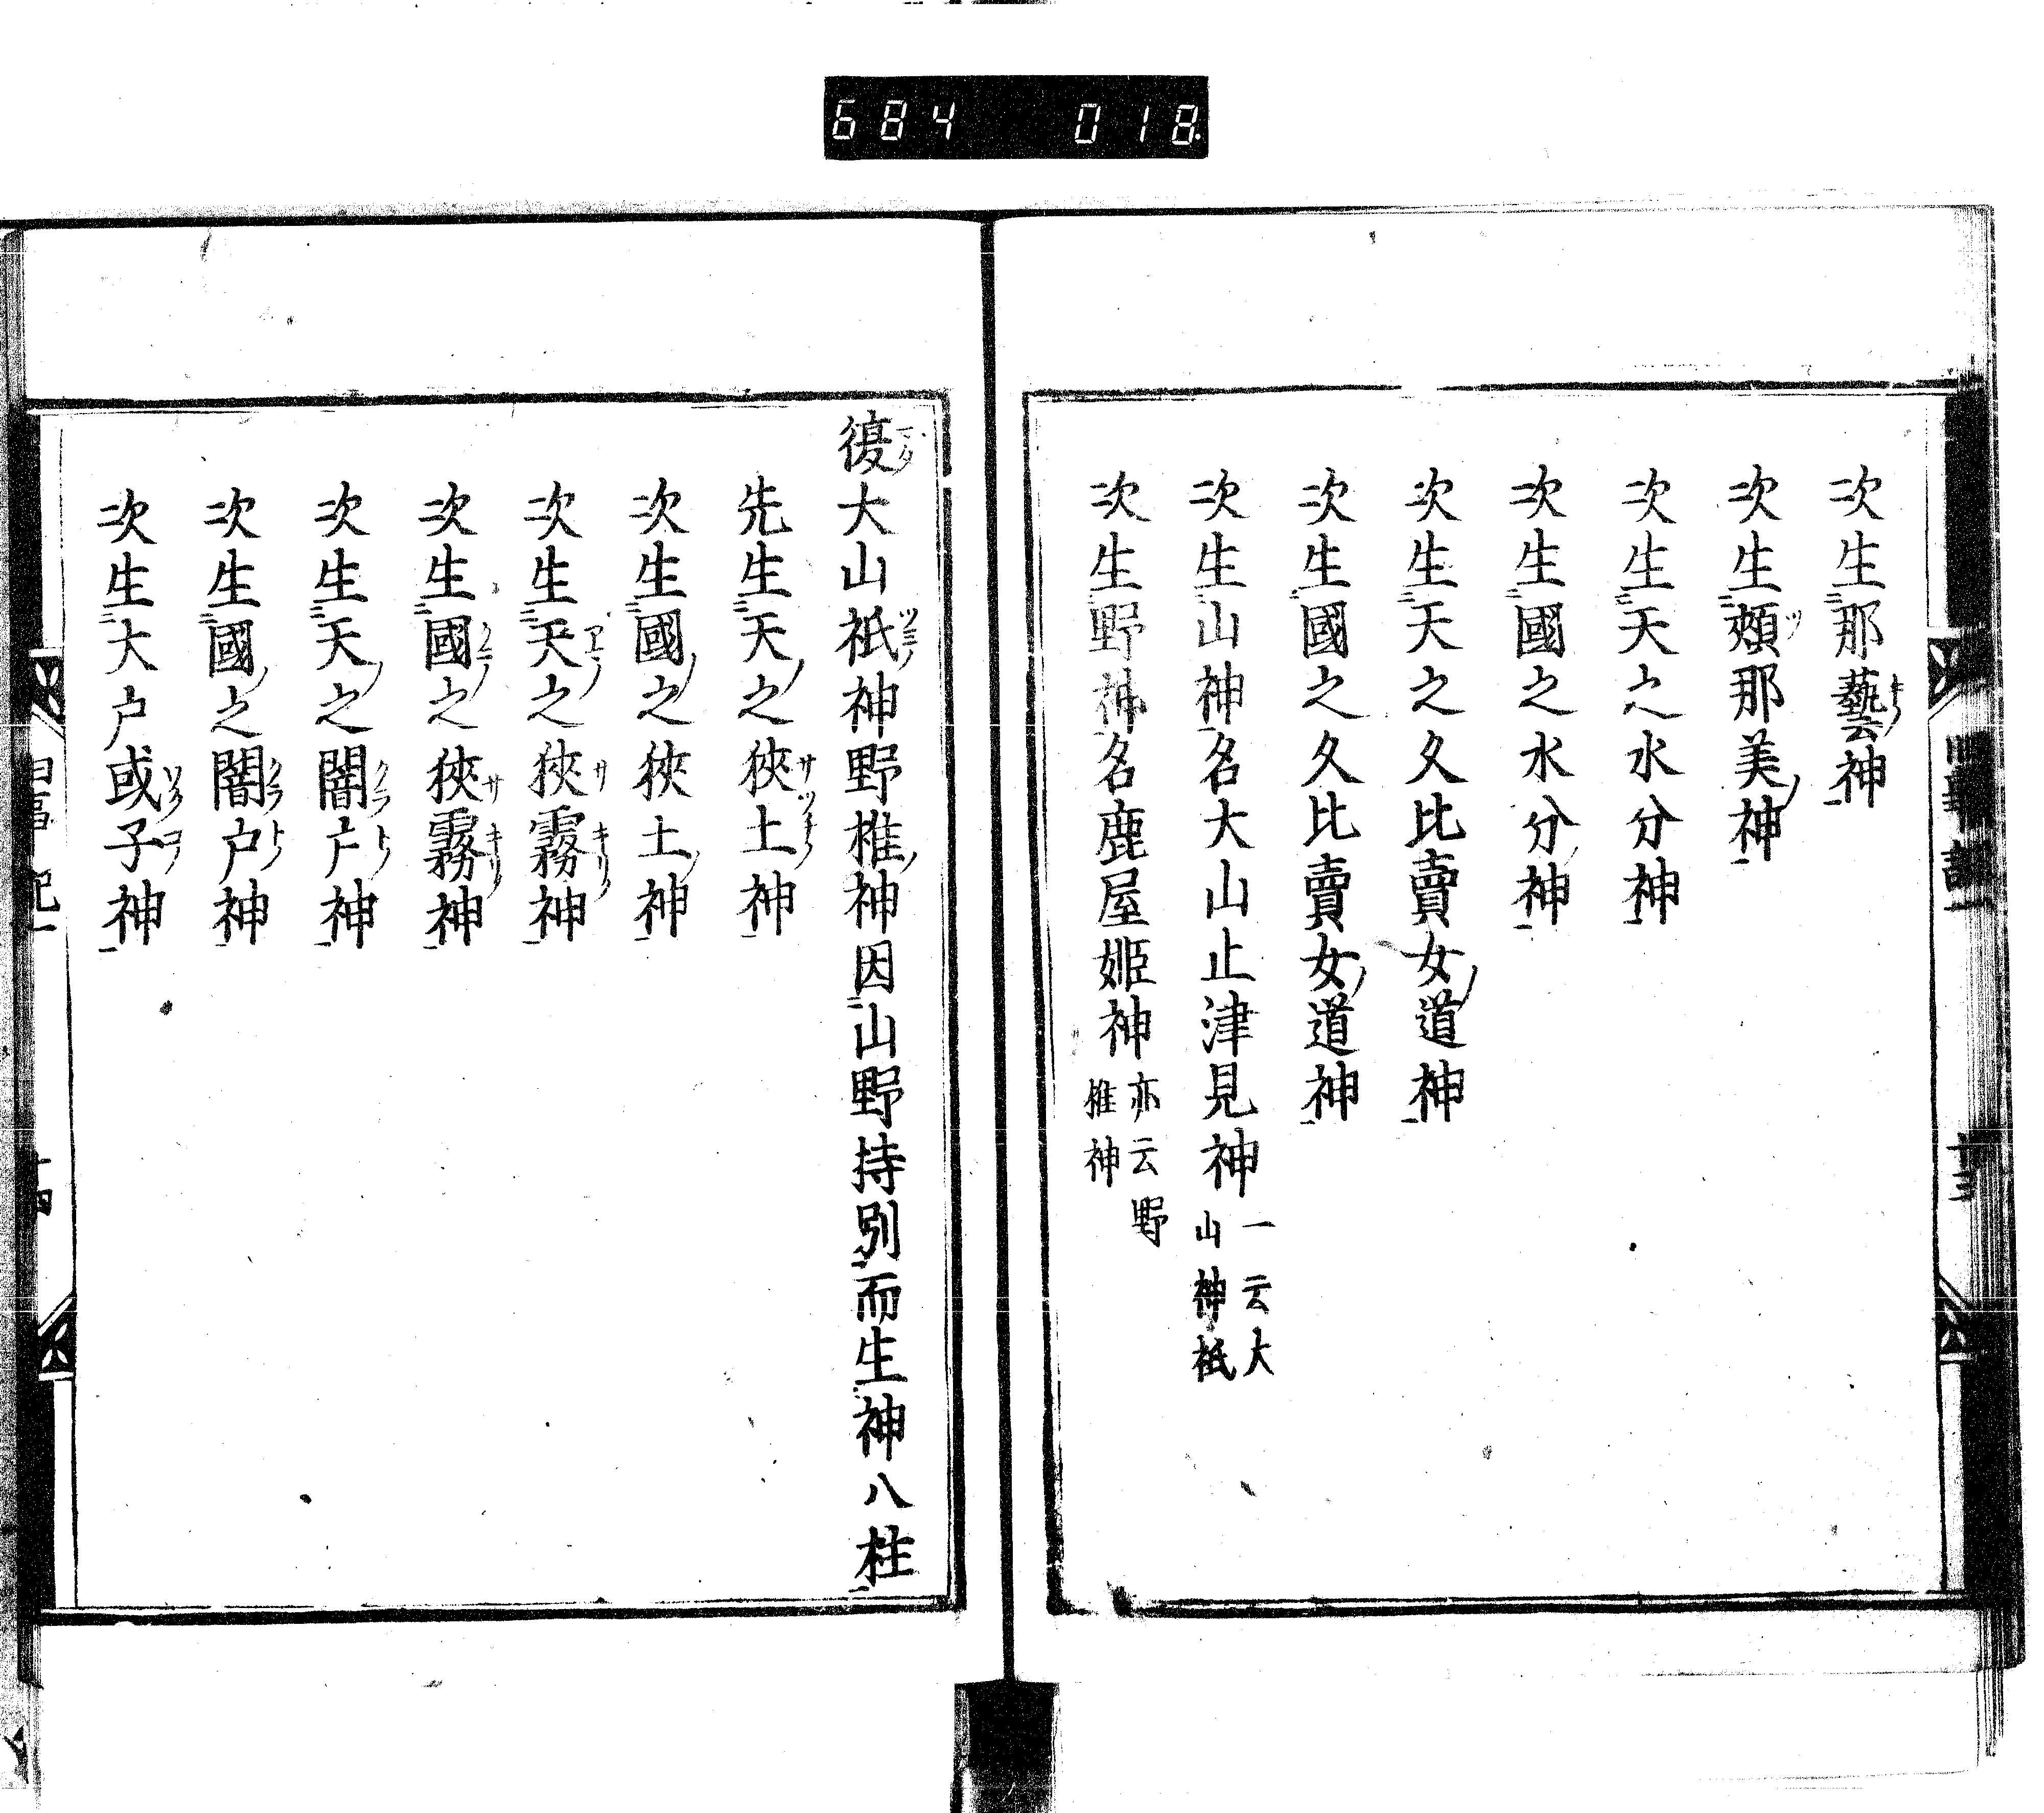 684 018
次生那藝神
次生頰那美神
次生天之水分神
次生國之水分神
次生天之久比賣女道神
次生國之久比賣女道神
次生山神名大山止津見神一云大山神祇
次生野神名鹿屋姬神亦云野椎神
復大山祇神野椎神因山野持別而生神八柱
先生天之狹土神
次生國之狹土神
次生天之狹霧神
次生國之狹霧神
次生天之闇戶神
次生國之闇戶神
次生大戶或子神